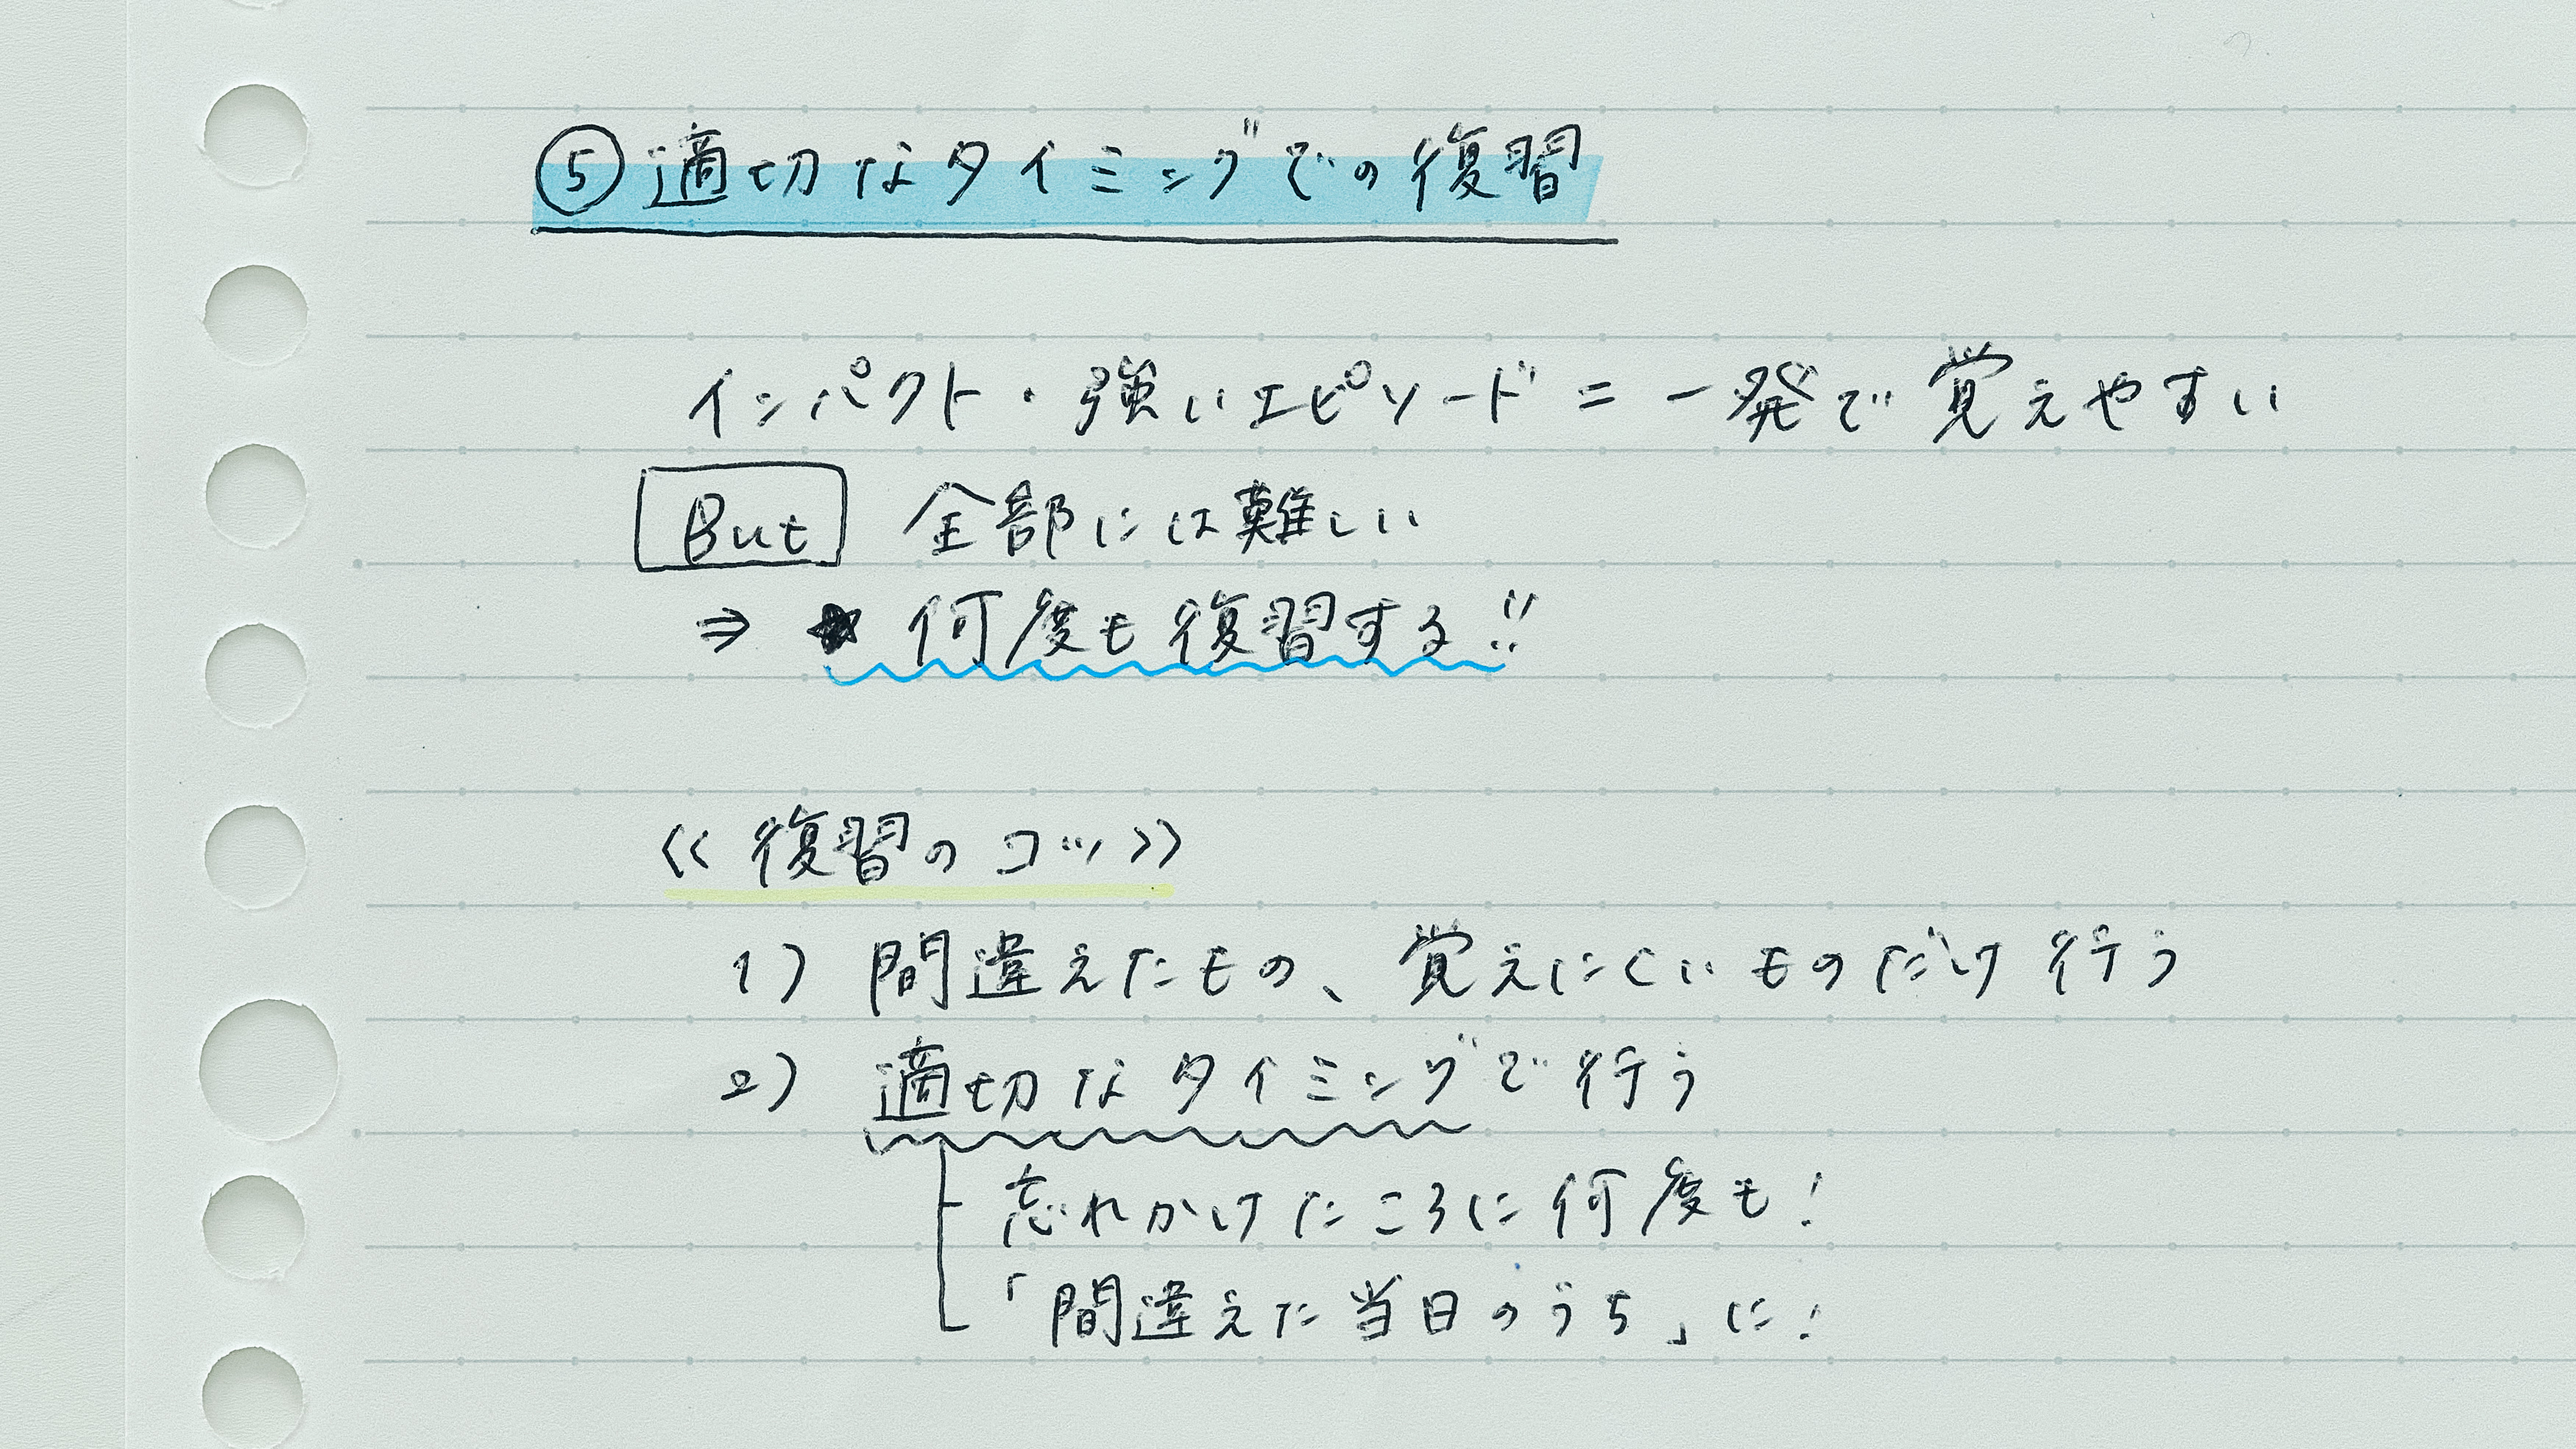 ⑤適切なタイミングでの復習
インパクト・強いエピソード=一発で覚えやすい
But 全部には難しい
⇒ ★ 何度も復習する!!
《復習のコツ》
1) 間違えたもの、覚えにくいものだけ行う
2) 適切なタイミングで行う
忘れかけたころに何度も!
「間違えた当日のうち」に!